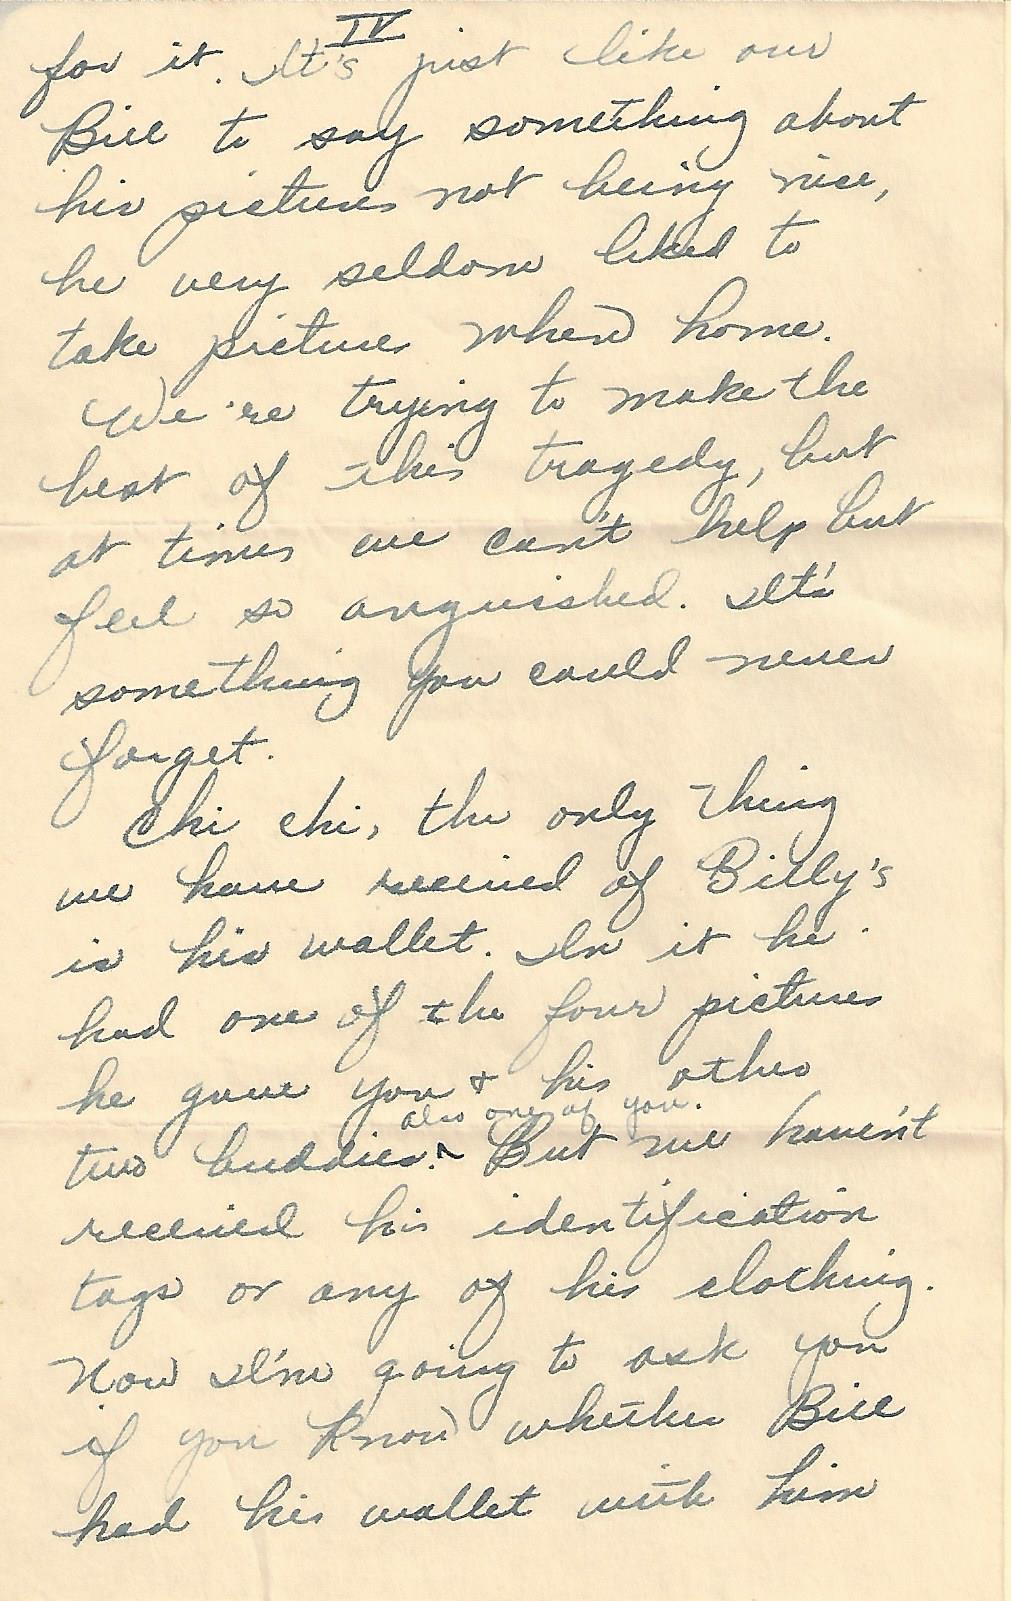 IV
for it. It's just like our
Bill to say something about
his pictures not being nice,
he very seldom liked to
take pictures when home.
We're trying to make the
best of this tragedy, but
at times we can't help but
feel so anguished. It's
something you could never
forget.
Chi chi, the only thing
we have received of Billy's
is his wallet. In it he
had one of the four pictures
he gave you & his other
also one of you.
two buddies.^ But we haven't
received his identification
tags or any of his clothing.
Now I'm going to ask you
if you know whether Bill
had his wallet with him